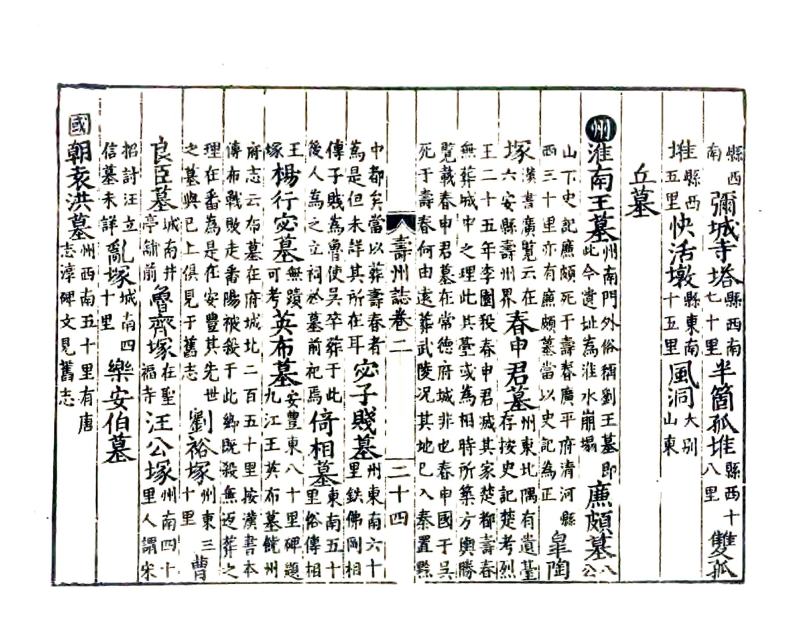 縣西南彌城寺塔縣西南七十里半箇孤堆縣西十八里雙孤
堆縣西五里快活墩縣東南十五里風洞大别山東
丘墓
州淮南王墓州南門外俗稱劉王墓即此今遺址為淮水崩塌廉頗墓八公
山下史記廉頗死于壽春廣平府清河縣西三十里亦有廉頗墓當以史記為正皐陶
塚漢書廣覽云在六安縣壽州界春申君墓州東北隅有遺臺存按史記楚考烈
王二十五年李園殺春申君滅其家楚都壽春
無葬城中之理此其臺或為相時所築方輿勝
覽載春申君墓在常德府城非也春申國于吳
死于壽春何由遠葬武陵况其地已入秦置黔
壽州誌卷二 二十四
中郡矣當以葬壽春者為是但未詳其所在耳宓子賤墓州東南六十里鉄佛岡相
傳子賤為魯使吳卒葬于此後人為之立祠於墓前祀焉倚相墓東南五十里俗傳相
王塚楊行宓墓無蹟可考英布墓安豐東八十里碑題九江王英布墓饒州
府志云布墓在府城北二百五十里按漢書本
傳布戰敗走番陽被殺于此鄉既殺無返葬之
理在番為是在安豐其先世之墓與已上俱見于舊志劉裕塚州東三十里曹
良臣墓城南井亭舖前魯齊塚在聖福寺汪公塚州南四十里人謂宋
招討汪立信墓未詳亂塚城南四十里樂安伯墓
國朝袁洪墓州西南五十里有唐志淳碑文見舊志